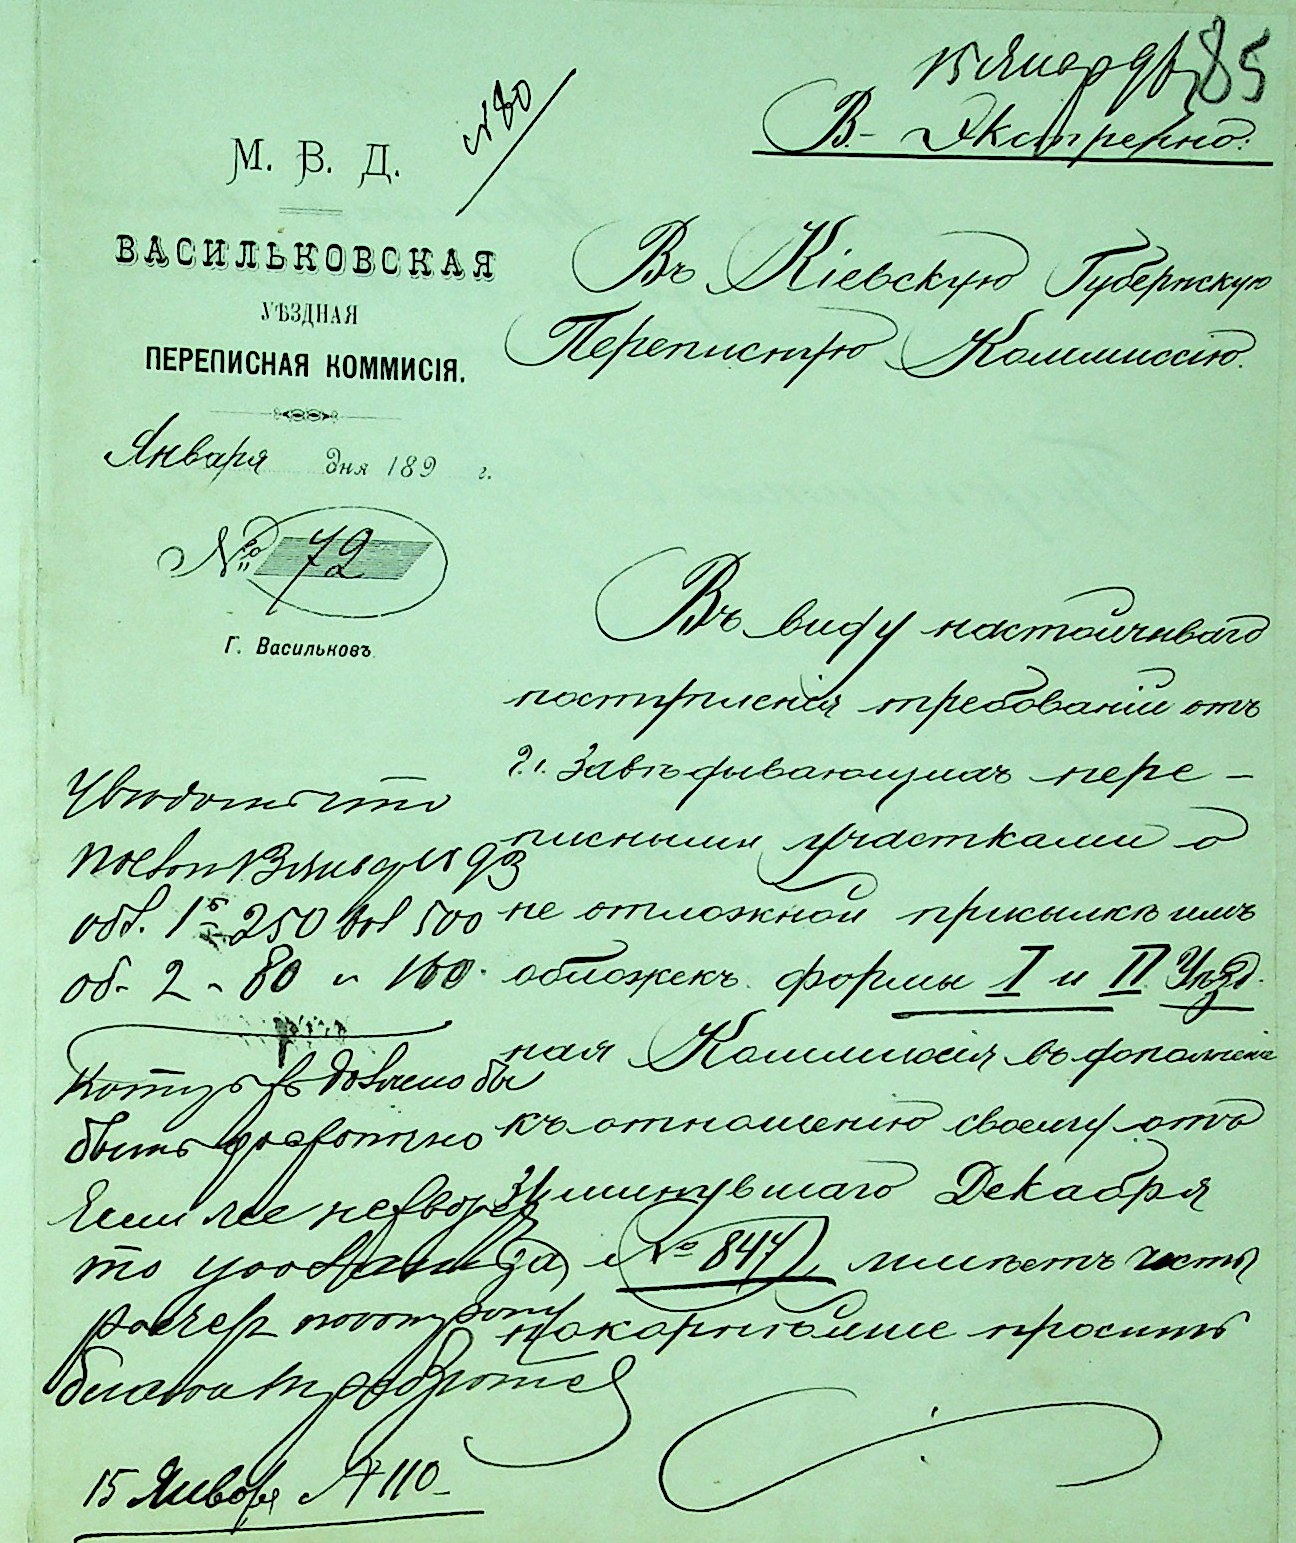 15 Января 85
В.- Экстренно.
№ 80
М. В. Д.
ВАСИЛЬКОВСКАЯ
УѢЗДНАЯ
ПЕРЕПИСНАЯ КОММИСІЯ.
Января дня 189 г.
№ 72
Г. Васильковъ.
Въ Кіевскую Губернскую
Переписную Коммиссію.
Въ виду настойчиваго
поступленія требованій отъ
г.г. Завѣдывающихъ пере-
писными участками о
не отложной присылкѣ имъ
обложекъ формы I и II Уѣзд-
ная Коммиссія въ дополненіе
къ отношенію своему отъ
31 минувшаго Декабря
за № 847, имѣетъ честь
покорнѣйше просить
Увѣдомить что
13 Января
обл. 1й 250 500
об. 2 - 80 и 100.
должно бы
быть достаточно
Если же
то
расчетъ
15 Января № 110